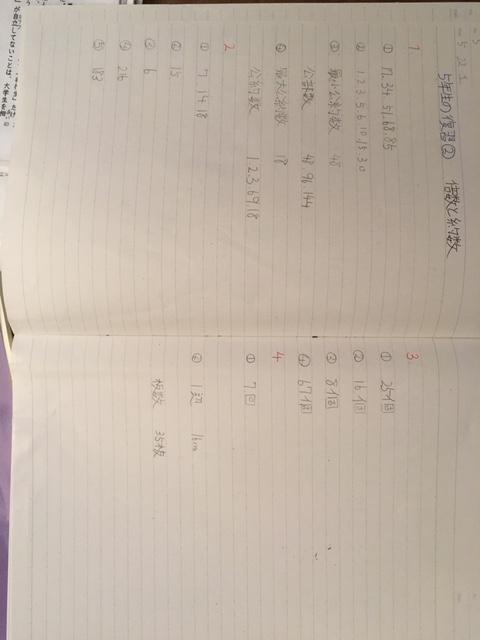 5年生の復習② 倍数と約数
1
① 17. 34. 51. 68. 85
② 1 2 3 5 6 10 15 30
③ 最小公約数 48
公倍数 48 96. 144
④ 最大公約数 18
公約数 1. 2. 3. 6 9. 18
2
① 7 14 18
② 15
③ 6
④ 216
⑤ 183
3
① 25個
② 16個
③ 8個
④ 67個
4
① 7回
② 1辺 16cm
板数 35枚